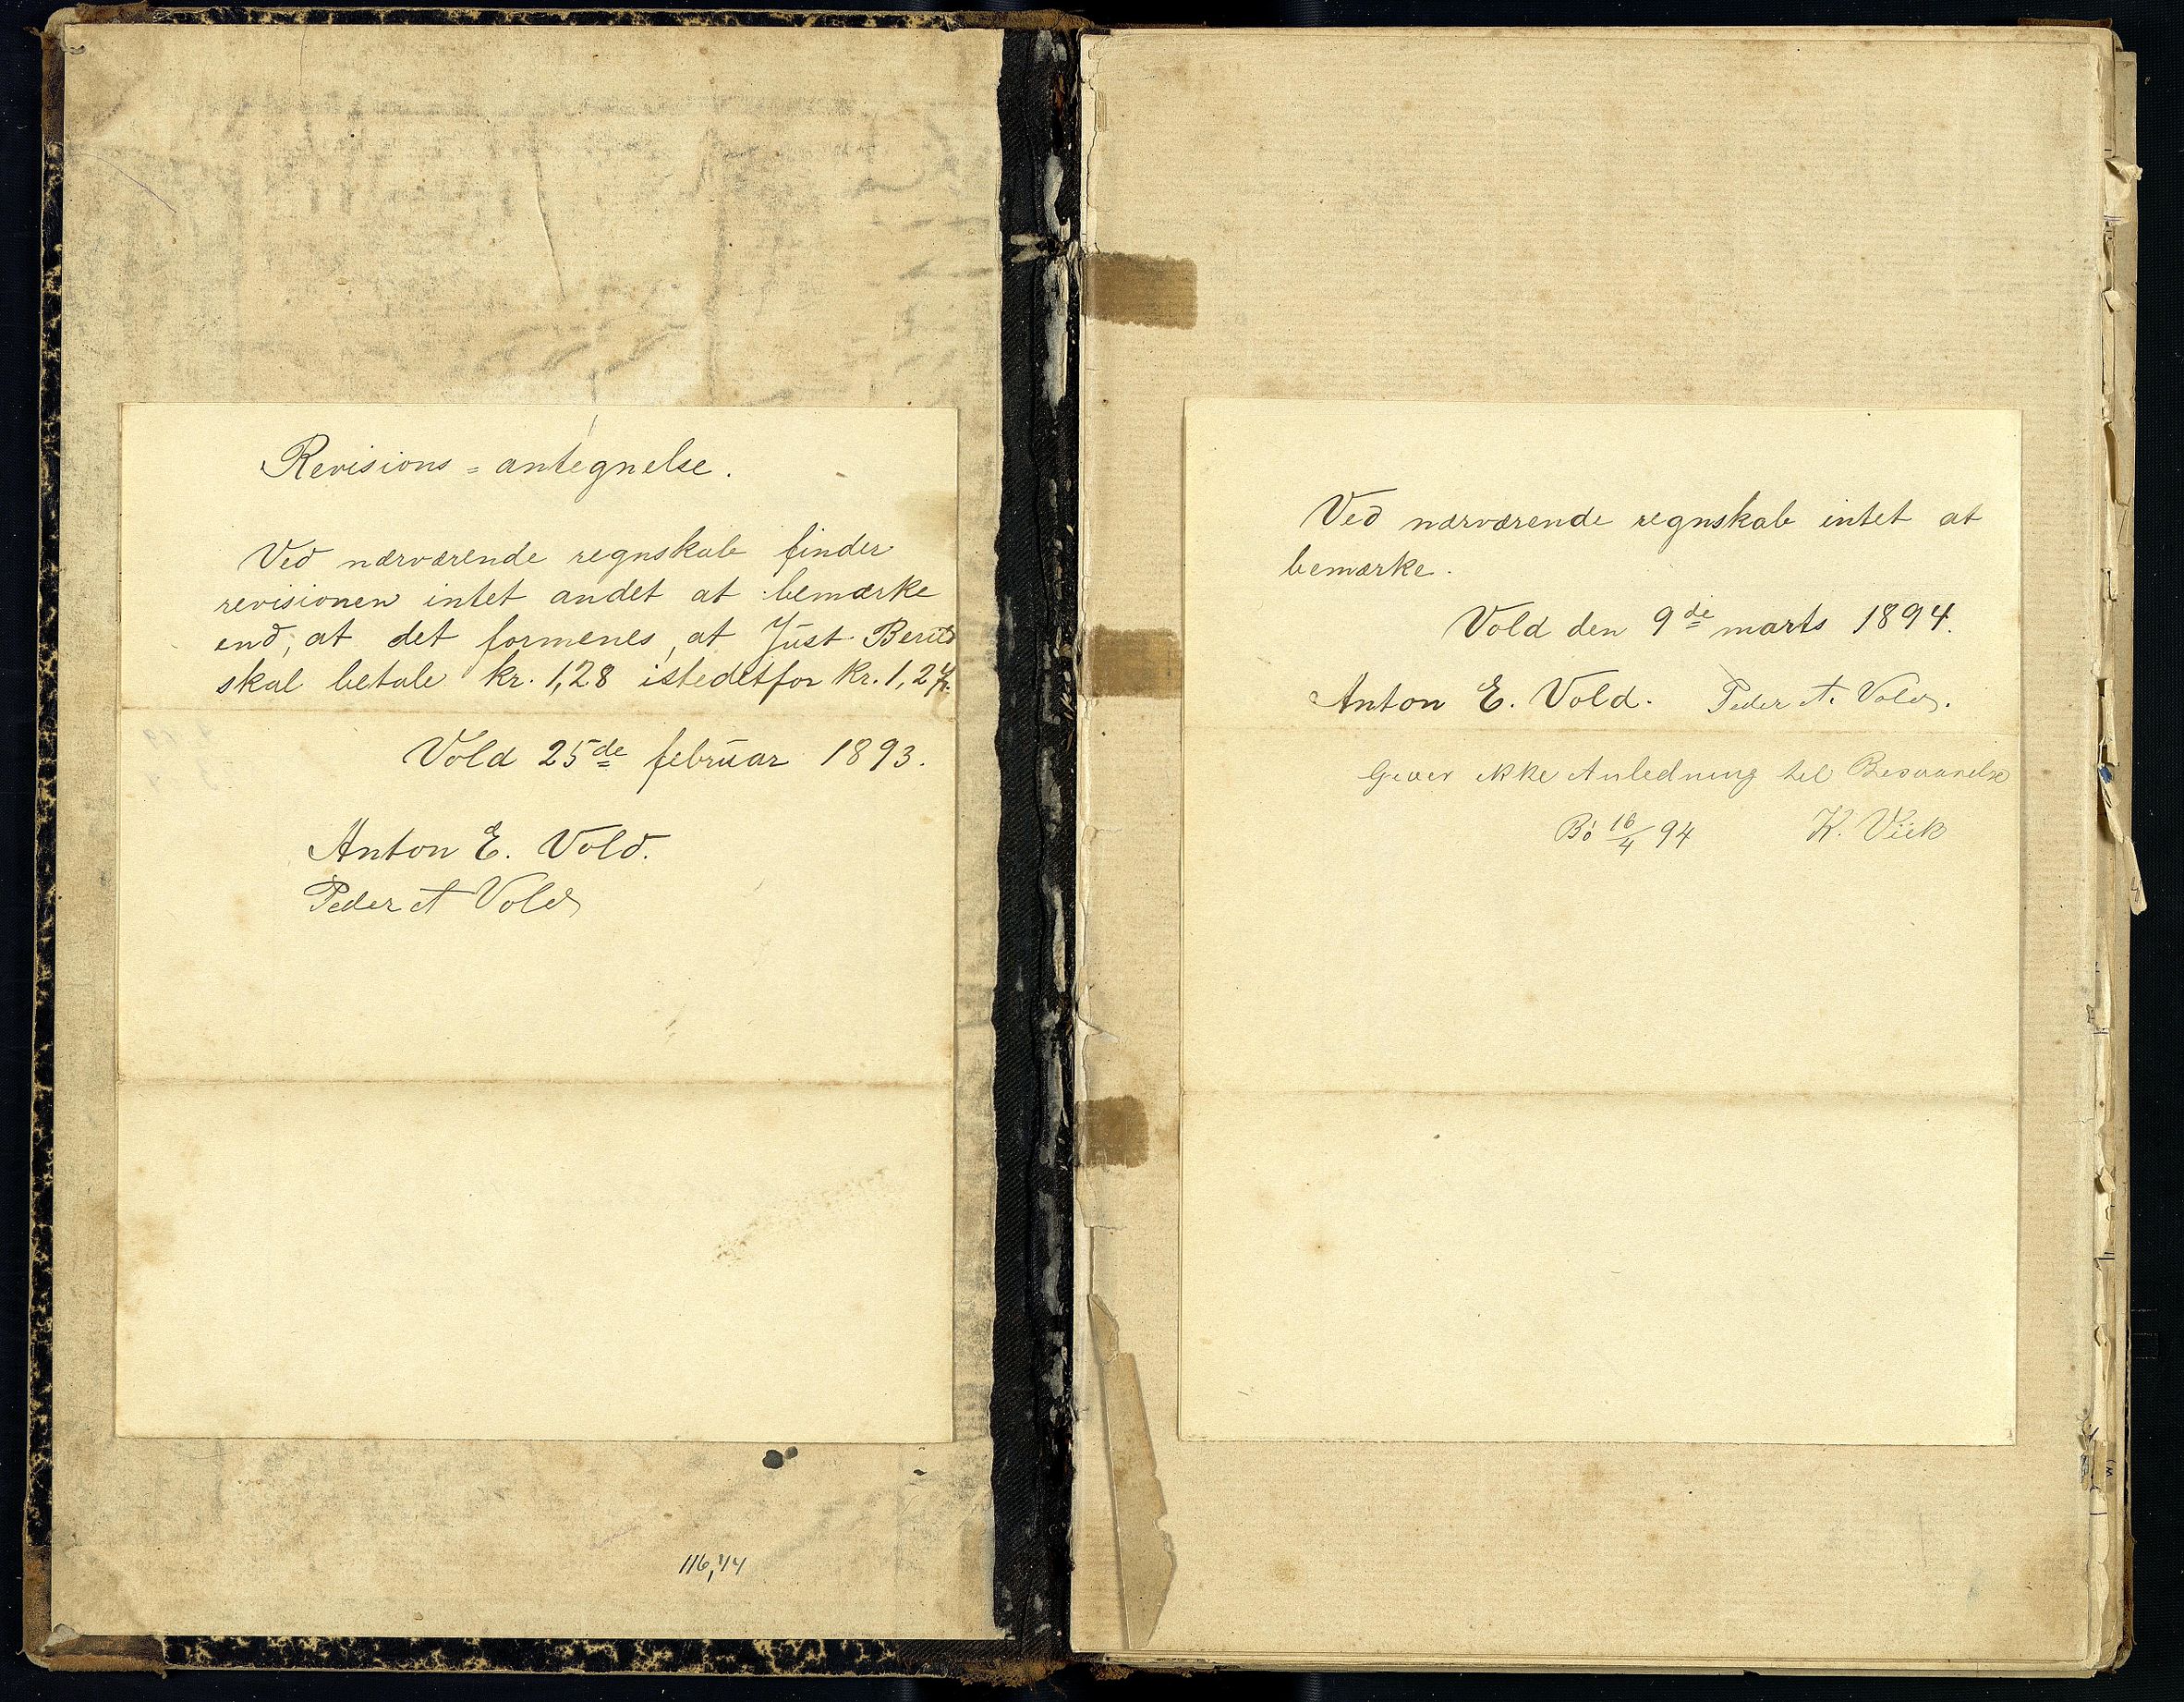 Revisions-antegnelse.
Ved nærværende regnskab finder
revisionen intet andet at bemærke
end, at det formenes, at Just Berud
skal betale kr. 1,28 istedetfor kr. 1,24.
Vold 25de februar 1893.
Anton E. Vold.
Peder A Vold
116,44
Ved nærværende regnskab intet at
bemærke.
Vold den 9de marts 1894.
Anton E. Vold. Peder A. Vold.
Giver ikke Anledning til
Bö 16/4 94 K. Viik